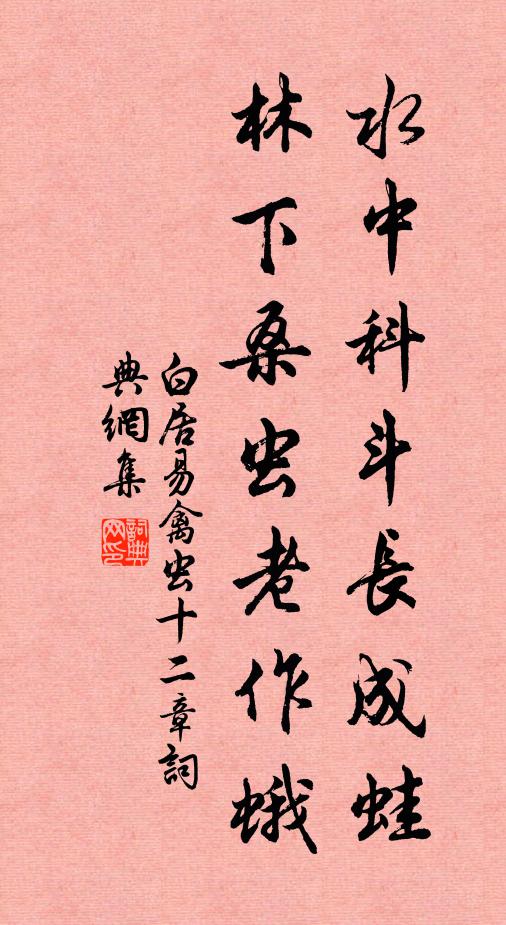 水中科斗長成蛙
林下桑虫老作蛾
白居易禽虫十二章詞
典網集
詞典
网印